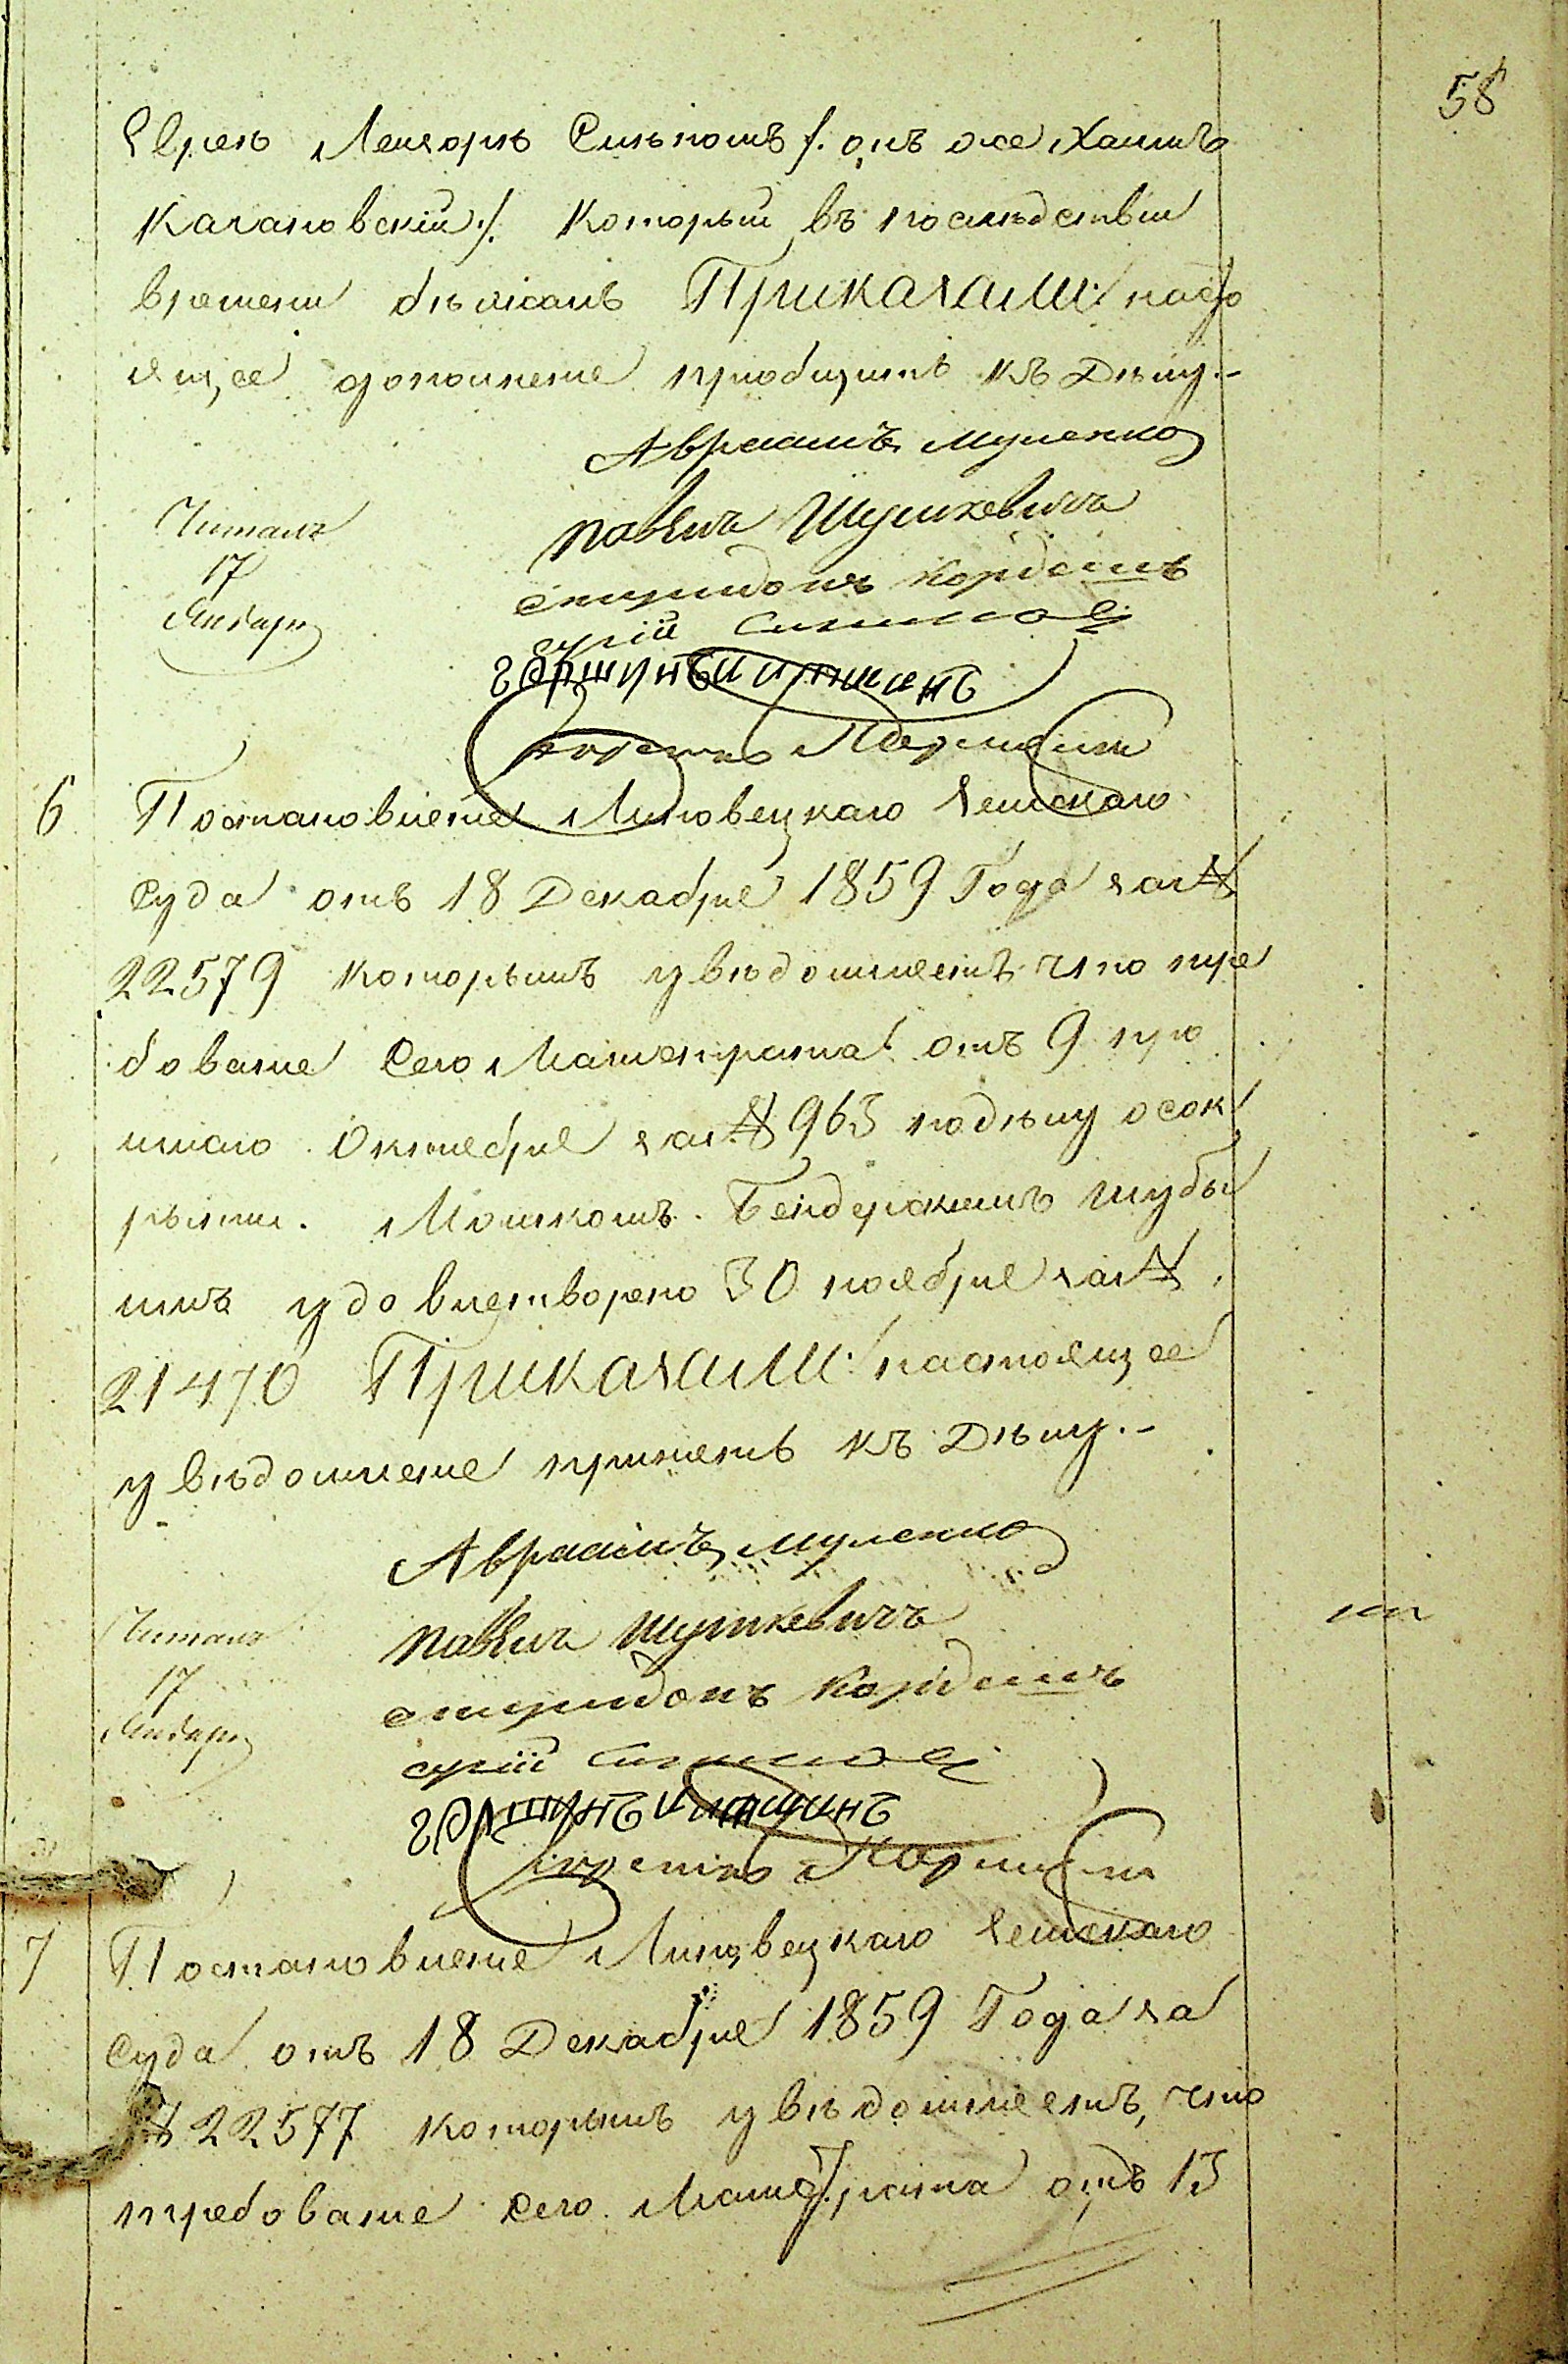 58
Еврей Лейзоръ Сильномъ /: онъ же Хаимъ
Качановскій :/. Который въ последствіи
времени бѣжалъ Приказали: насто
ящее дополнение приобщить къ Дѣлу.-
Авраамъ Муленко
Читалъ
17
Января
Павелъ Шушкевичъ
Спиридонъ Кордашъ
Гершунъ
6 Постановленіе Липовецкаго Земскаго
Суда отъ 18 Декабря 1859 Года за №
22579 которымъ увѣдомляетъ что тре
бование Сего Магистрата отъ 9 про
шлаго Октября за № 963 подѣлу о сок
рытии Мошкомъ Бендерскимъ шубы
имъ удовлетворено 30 ноября за №
21470 Приказали: настоящее
увѣдомление принять къ Дѣлу.-
Авраамъ Муленко
Читалъ
17
Января
Павелъ Шушкевичъ
Спиридонъ Кордашъ
Гершунъ
7 Постановление Липовецкаго Земскаго
Суда отъ 18 Декабря 1859 Года за
№ 22577 которымъ увѣдомляетъ, что
требование Сего Магистрата отъ 13